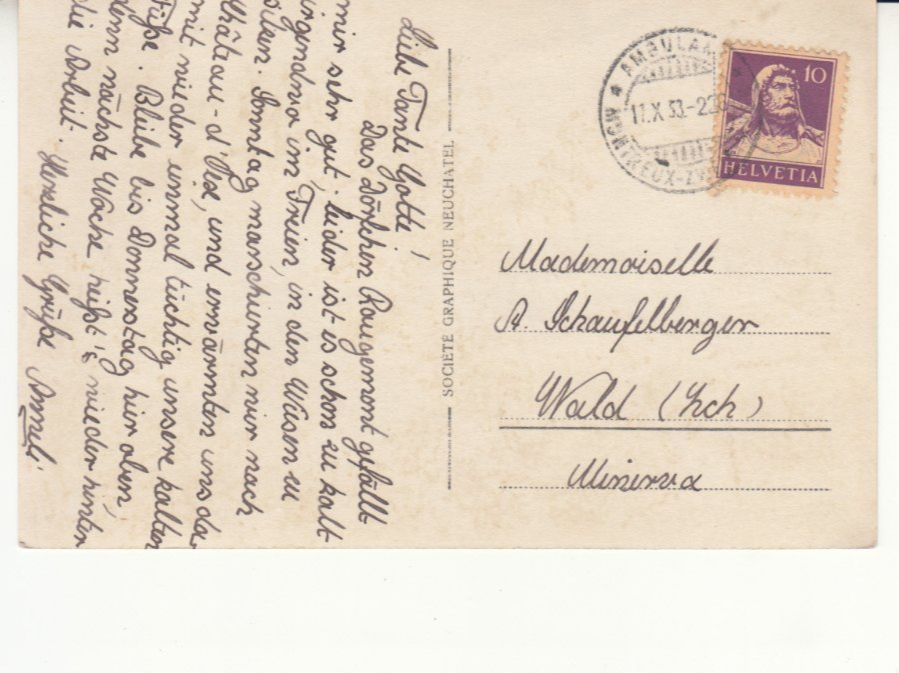 Liebe Tante Gotte!
Das Dörfchen Rougemont gefällt
mir sehr gut, leider ist es schon zu kalt
irgendwo im Freien, in den Wiesen zu
sitzen. Sonntag marschierten wir nach
Château-d'Oex, und erwärmten uns da
mit wieder einmal tüchtig unsere kalten
Füße. Bleibe bis Donnerstag hier oben,
denn nächste Woche heißt's wieder hinter
die Arbeit. Herzliche Grüße Anneli.
SOCIÉTÉ GRAPHIQUE NEUCHATEL
AMBULAN
MONTREUX-ZW
11.X.33.-22
10
HELVETIA
Mademoiselle
A. Schaufelberger
Wald (Zch)
Minerva